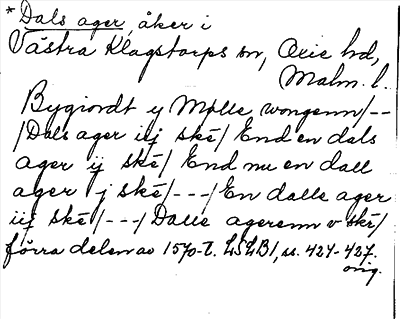 * Dals ager, åker i
Västra Klagstorps sn, Oxie hd,
Malm. l.
Bygiordt y Mølle wongenn/--
/Dals ager iij skē/ End en dals
ager ij skē/ End nu en dall
ager j skē/---/En dalle ager
iij skē/---/Dalle agerenn v skē/
förra delen av 1570-t. LSLB1, ss. 424-427.
orig.